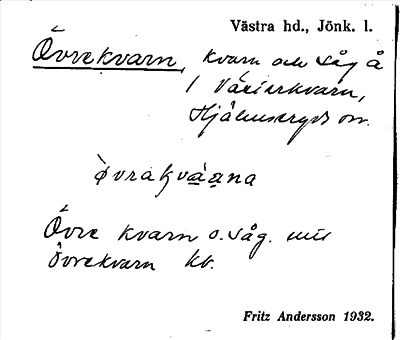 Västra hd., Jönk. l.
Övrekvarn, kvarn och såg å
1 Växierkvarn,
Hjälmseryds sn.
òvrakváana
Övre kvarn o. såg. mil
Övrekvarn kb.
Fritz Andersson 1932.